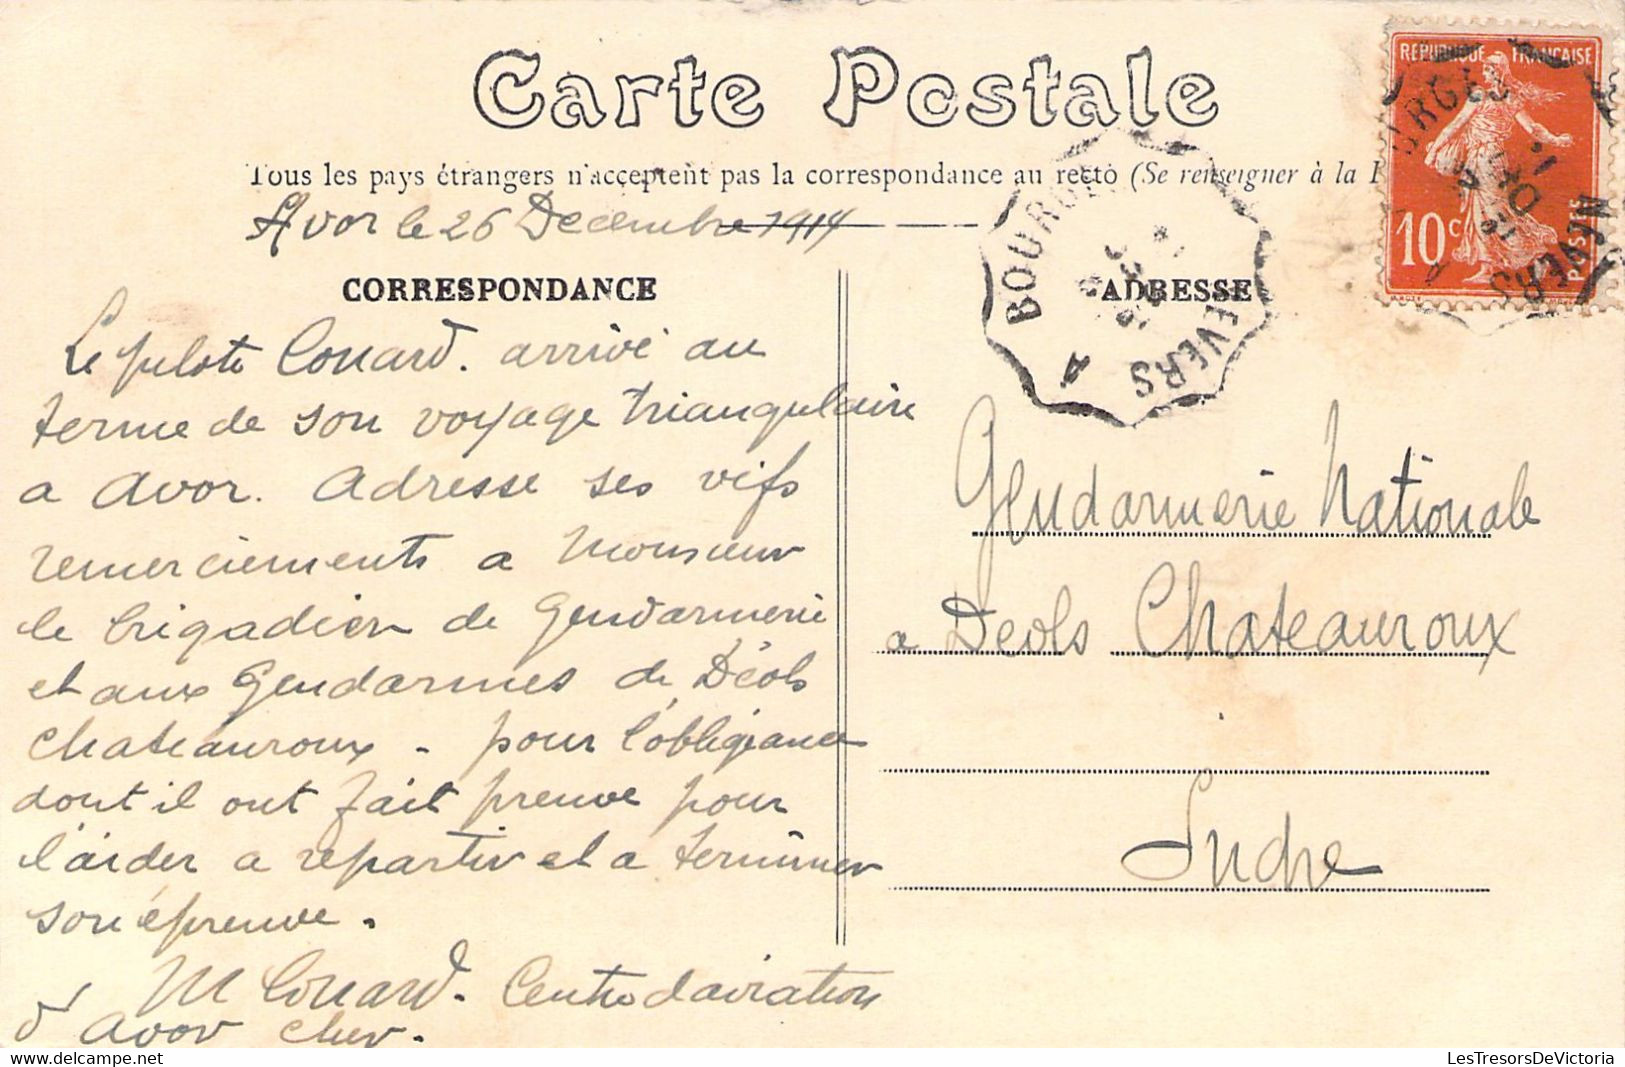 Carte Postale
Tous les pays étrangers n'acceptent pas la correspondance au recto (Se renseigner à la
Avor le 26 Decembre 1914
CORRESPONDANCE
Le pilote Conard. arrivé au
terme de son voyage triangulaire
a Avor. Adresse ses vifs
remerciements a Monsieur
le brigadier de Gendarmerie
et aux Gendarmes de Déols
Chateauroux - pour l'obligeance
dont il ont fait preuve pour
l'aider a repartir et a terminer
son épreuve.
M Conard. Centre d'aviation
d'Avor Cher.
ADRESSE
Gendarmerie Nationale
a Deols Chateauroux
Indre
REPUBLIQUE FRANÇAISE
10c
POSTES
BOURGES
NEVERS A
LesTresorsDeVictoria